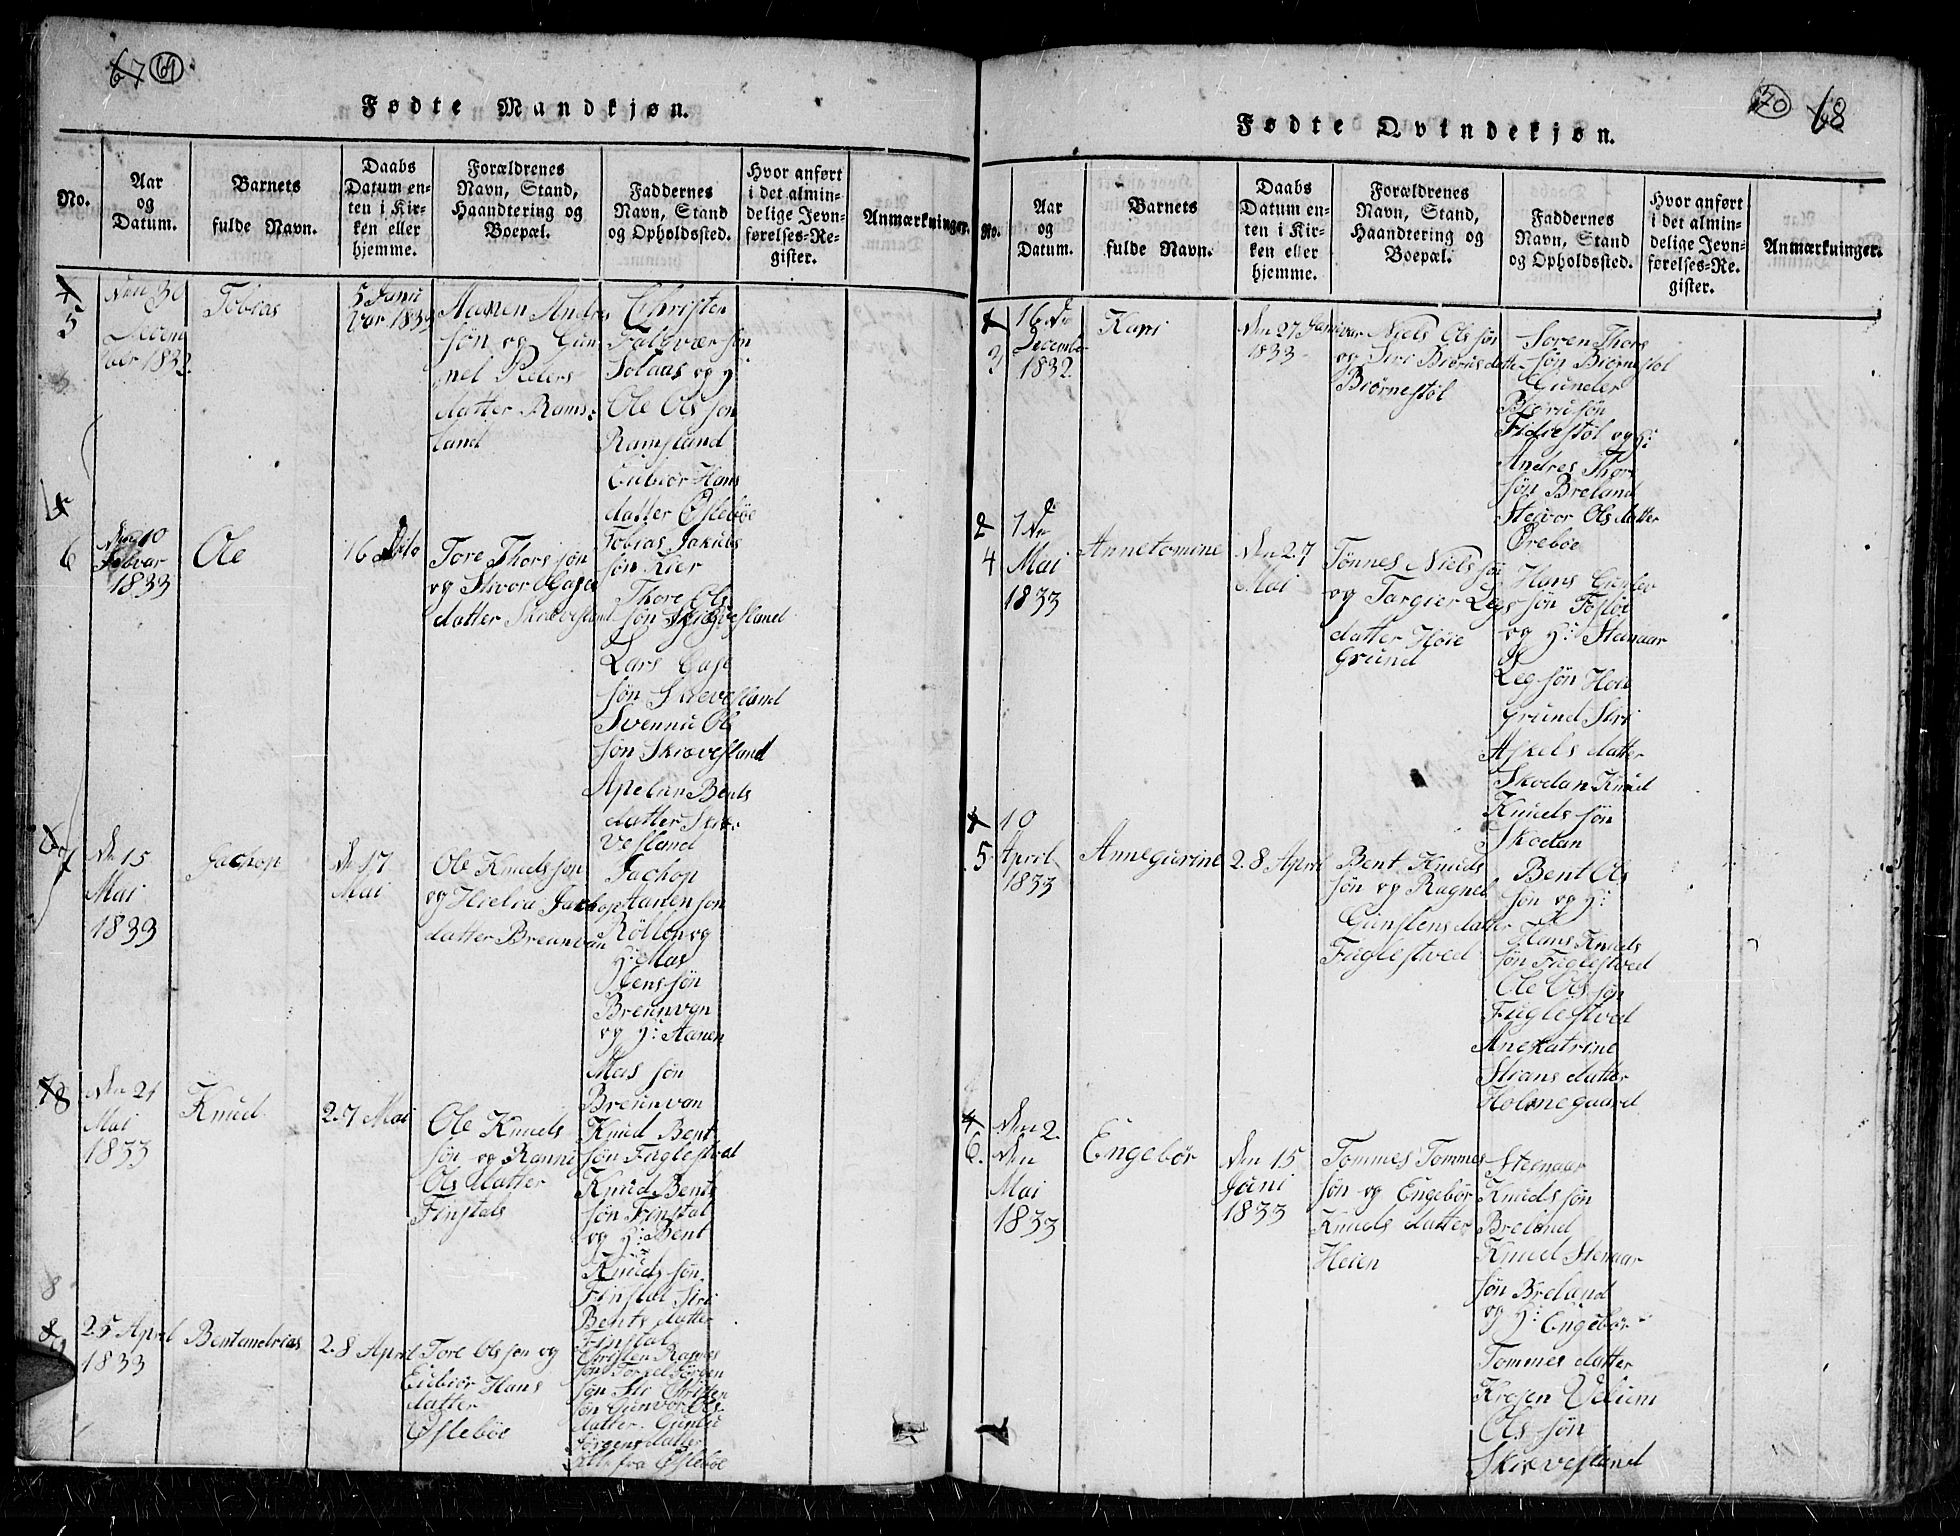 67 69
Fødte Mandkjøn.
No.
Aar
og
Datum.
Barnets
fulde Navn.
Daabs
Datum en-
ten i Kir-
ken eller
hjemme.
Forældrenes
Navn, Stand,
Haandtering og
Boepæl.
Faddernes
Navn, Stand
og Opholdssted.
Hvor anført
i det almin-
delige Jevn-
førelses-Re-
gister.
Anmærkninger.
5
30
1832
Tobias
5 Janu
var 1833
Aanen Andrs
søn og Gun
nel Peters
datter Rams-
land
Christen
søn
Solaas og
Ole Ols søn
Ramsland
Eiebiør Hans
datter Øslebøe
6
10
Febvar
1833
Ole
16 Dito
Tore Thors søn
og Sivor Oases
datter Skrævesland
Tobias Jakobs
søn Kier
Thore Ols
søn Skrævesland
Lars
søn Skrævesland
Svennu Ol
søn Skrævesland
Bents
datter Skræ
vesland
7
den 15
Mai
1833
Jachop
den 17
Mai
Ole Knuds søn
og Jachop
datter Breunvan
Jachop
Aanen søn
og
Mas
Jens søn
Breunvan
og Aanen
Mas søn
Breunvan
8
den 21
Mai
1833
Knud
27 Mai
Ole Knuds
søn og Ranni
Ols datter
Finstals
Knud Bent
søn Fuglestved
Knud Bents
søn Finstal
og Bent
Knuds søn
Finstal Siri
Bents datter
Finstal
9
25 April
1833
Bentandreas
28 April
Tore Ols søn og
Eiebiør Hans
datter
Øslebøe
Christen
søn Torgel Jørgen
søn Christen
søn Gunvor Ols
datter
Jørgens datter
Alle fra Øslebøe
70 68
Fødte Qvindekjøn.
No.
Aar
og
Datum.
Barnets
fulde Navn.
Daabs
Datum en-
ten i Kir-
ken eller
hjemme.
Forældrenes
Navn, Stand,
Haandtering og
Boepæl.
Faddernes
Navn, Stand
og Opholdssted.
Hvor anført
i det almin-
delige Jevn-
førelses-Re-
gister.
Anmærkninger.
3
16 de
December
1832
Kari
den 27 Januvar
1833
Niels Ols søn
og Siri Biørns datter
Biørnestøl
Soren Thors
søn Biørnestøl
Gunder
Biørn søn
Fidiestøl og
Andres Thor
søn Breland
Steivor Ols datter
Ørebøe
4
1 de
Mai
1833
Annetomine
den 27
Mai
Tønnes Niels søn
og Targier Legs
datter Høie
Grund
Hans
søn
og Steinaar
Leg søn Høie
Grund Siri
Askels datter
Skodan Knud
Knuds søn
Skodan
5
10
April
1833
Annegurine
28 April
Bent Knuds
søn og Ragnel
Gunstens datter
Fuglestved
Bent Ols
søn og
Hans Knuds
søn Fuglestved
Ole Ols søn
Fuglestved
Anekatrine
Stians datter
Holmegaard
6
den 2
den
Mai
1833
Engebør
den 15
Juni
1833
Tommes Tommes
søn og Engebør
Knuds datter
Heien
Steenaar
Knuds søn
Breland
Knud Stenaar
søn Breland
og Engebør
Tommes datter
Ols søn
Skrævesland